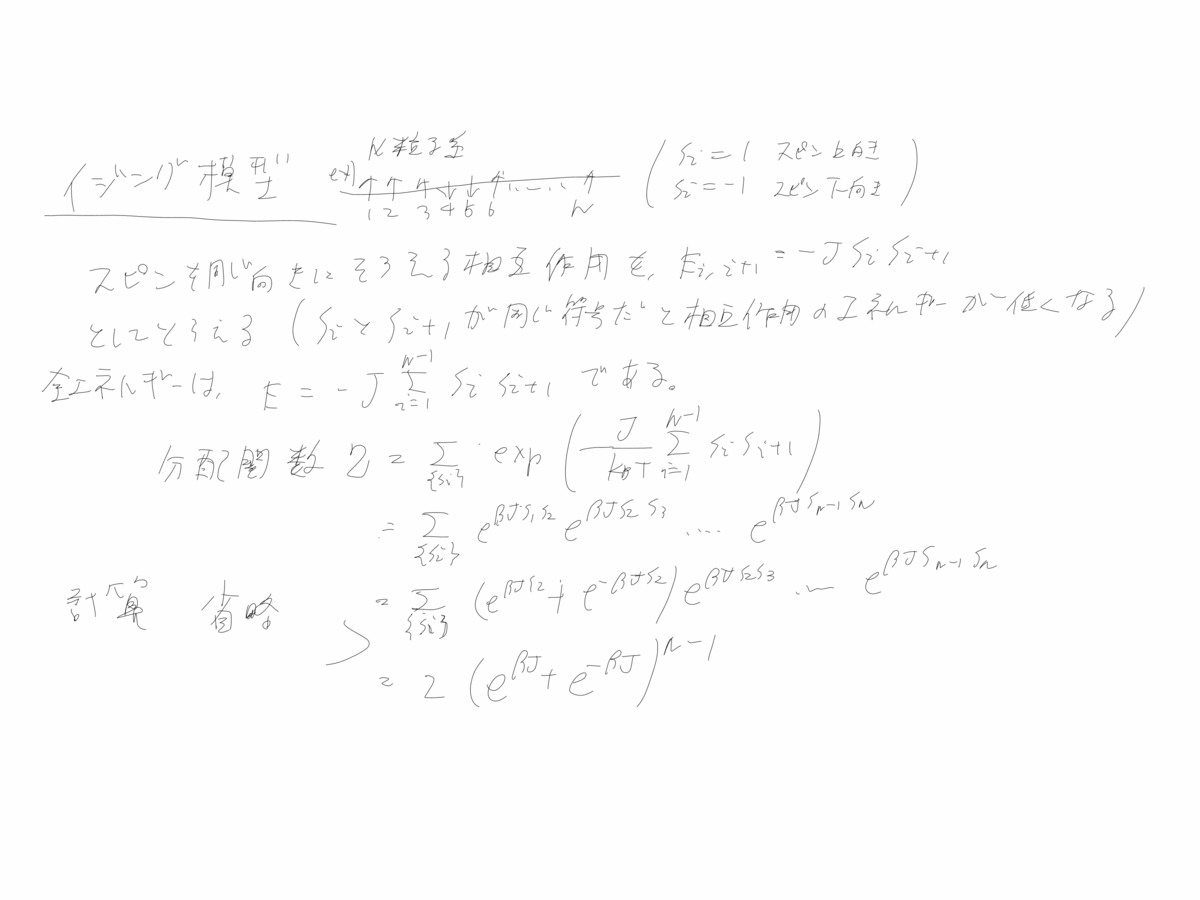 イジング模型 ex) N粒子系 ( Si = 1 スピン上向き
1 2 3 4 5 6 ..... N Si = -1 スピン下向き )
スピンを同じ向きにそろえる相互作用を, Ei,i+1 = -J Si Si+1
としてとらえる ( Si と Si+1 が同じ符号だと相互作用のエネルギーが低くなる )
全エネルギーは, E = -J Σ_{i=1}^{N-1} Si Si+1 である。
分配関数 Z = Σ_{{Si}} exp ( J/(kBT) Σ_{i=1}^{N-1} Si Si+1 )
= Σ_{{Si}} e^{βJS1S2} e^{βJS2S3} .... e^{βJSn-1Sn}
計算 省略 = Σ_{{Si}} (e^{βJS2} + e^{-βJS2}) e^{βJS2S3} ... e^{βJSn-1Sn}
= 2 (e^{βJ} + e^{-βJ})^{n-1}